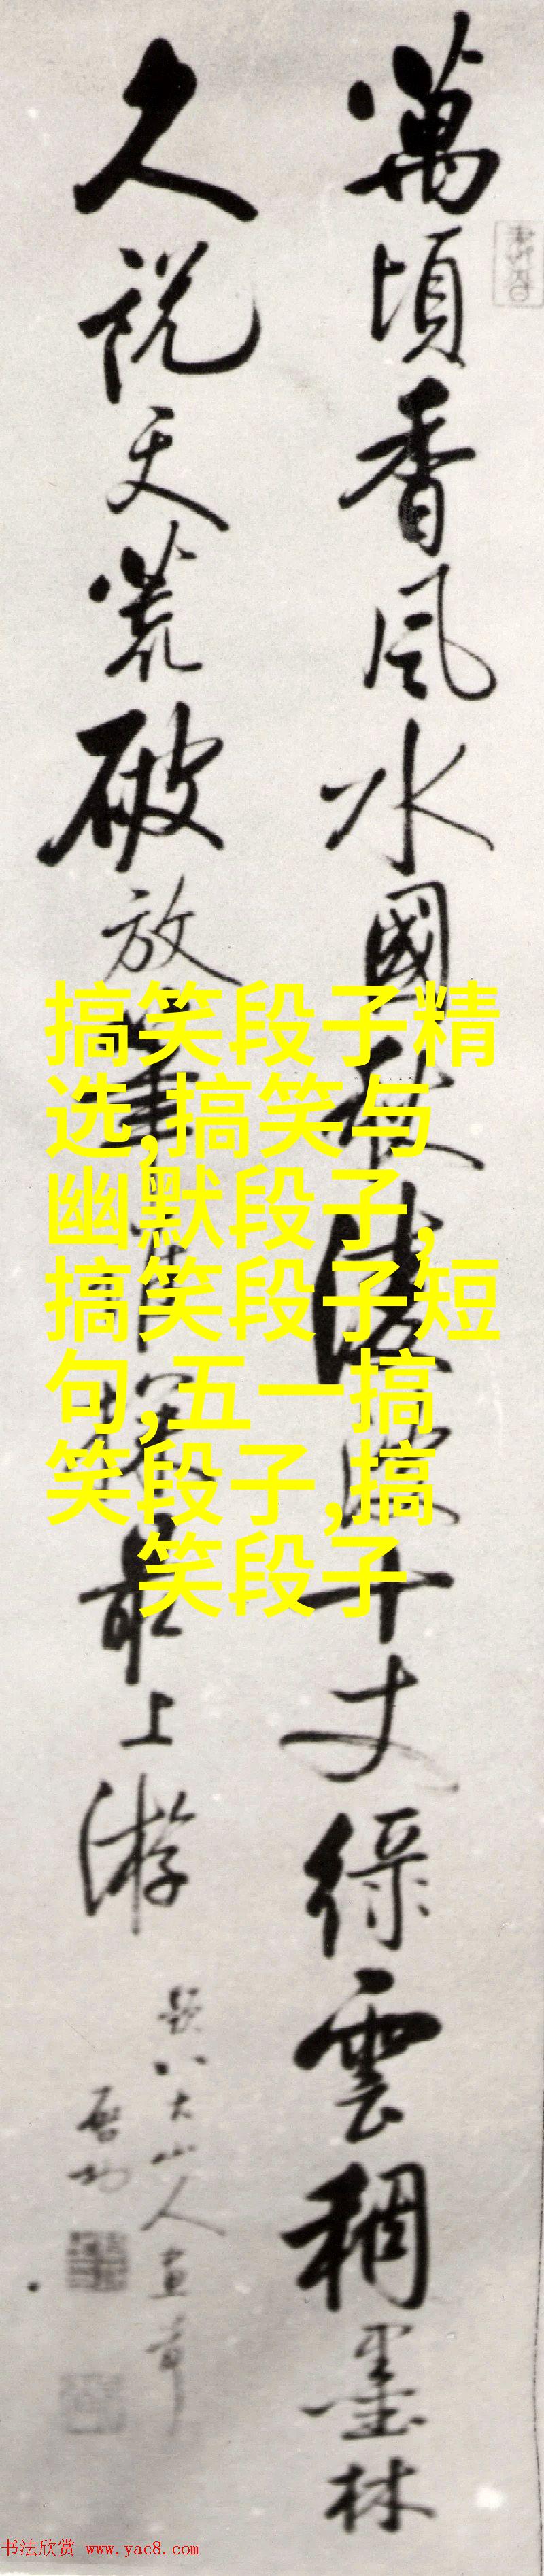 萬頃香風水國秋淩波十丈綠雲稠墨林
久說天荒破放筆最上游
題八大山人畫荷
啓功
搞笑段子精
选,搞笑与
幽默段子,
搞笑段子短
句,五一搞
笑段子,搞
笑段子
书法欣赏 www.yac8.com